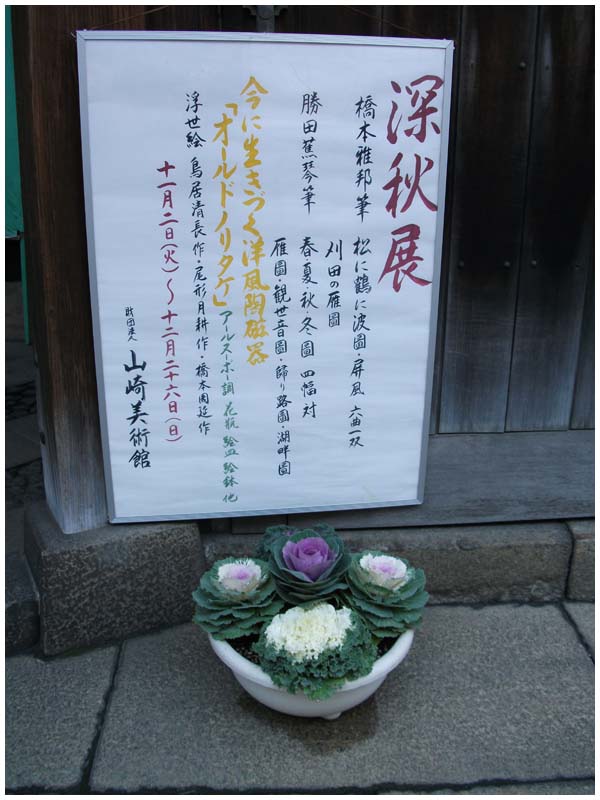 深秋展
橋本雅邦筆 松に鶴に波圖・屏風 六曲一双
刈田の雁圖
勝田蕉琴筆 春・夏・秋・冬圖 四幅対
雁圖・観世音圖・帰り路圖・湖畔圖
今に生きづく洋風陶磁器
「オールドノリタケ」アールヌーボー調 花瓶 絵皿 絵鉢 他
浮世絵 鳥居清長 作・尾形月耕作・橋本周延 作
十一月二日(火)〜十二月二十六日(日)
財団法人 山崎美術館